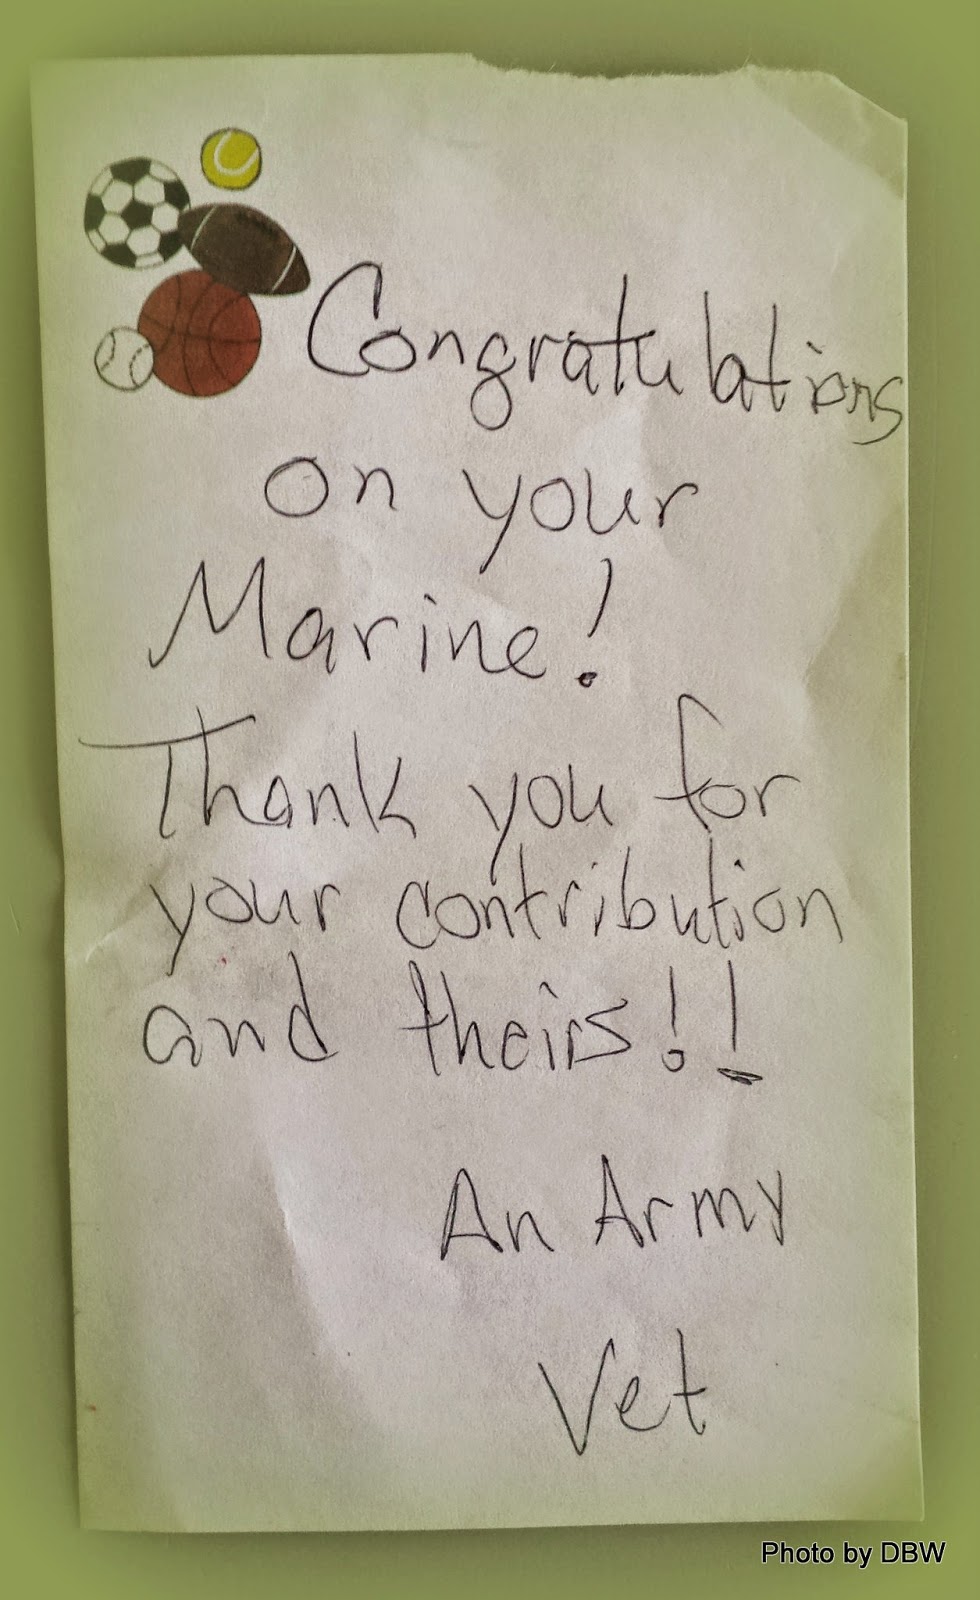 Congratulations
on your
Marine!
Thank you for
your contribution
and theirs!!
An Army
Vet
Photo by DBW